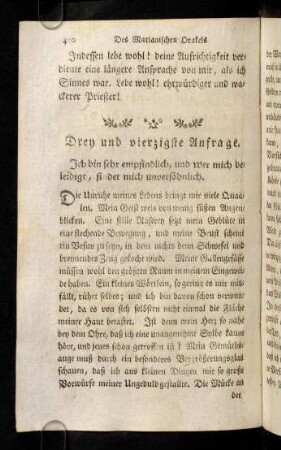 420 Des Marianischen Orakels
Indessen lebe wohl! deine Aufrichtigkeit ver-
diente eine längere Ansprache von mir, als ich
Sinnes war. Lebe wohl! ehrwürdiger und wa-
ckerer Priester!
Drey und vierzigste Anfrage.
Ich bin sehr empfindlich, und wer mich be-
leidigt, findet mich unversöhnlich.
Die Unruhe meines Lebens bringt mir viele Quaa-
len. Mein Geist weis von wenig süßen Augen-
blicken. Eine stille Raserey setzt mein Geblüte in
eine stechende Bewegung, und meine Brust scheint
ein Vesuv zu seyn, in dem nichts denn Schwefel und
brennendes Zeug gekocht wird. Meine Gallengefäße
müssen wohl den größten Raum in meinem Eingewei-
de haben. Ein kleines Wörtlein, so gering es mir mis-
fällt, rühret selber; und ich bin davon schon verwun-
det, da es von sich selbsten nicht einmal die Fläche
meiner Haut betastet. Ist denn mein Herz so nahe
bey dem Ohre, daß ich eine unangenehme Sylbe kaum
höre, und jenes schon getroffen ist? Mein Gemüths-
auge muß durch ein besonderes Vergrößerungsglas
schauen, daß ich aus kleinen Dingen mir so große
Vorwürfe meiner Ungeduld gestalte. Die Mücke an
der